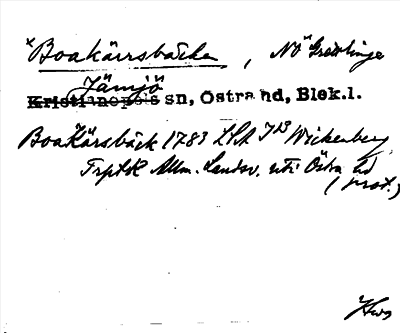 Boakärrsbäcken, NÖ Grisslinge
Jämjö
Kristianopels sn, Östra hd, Blek.l.
Boakärsbäck 1783 LSA J13 Wickenberg,
Trplkk Allm. Landsv. uti Östra hd
(prot.)